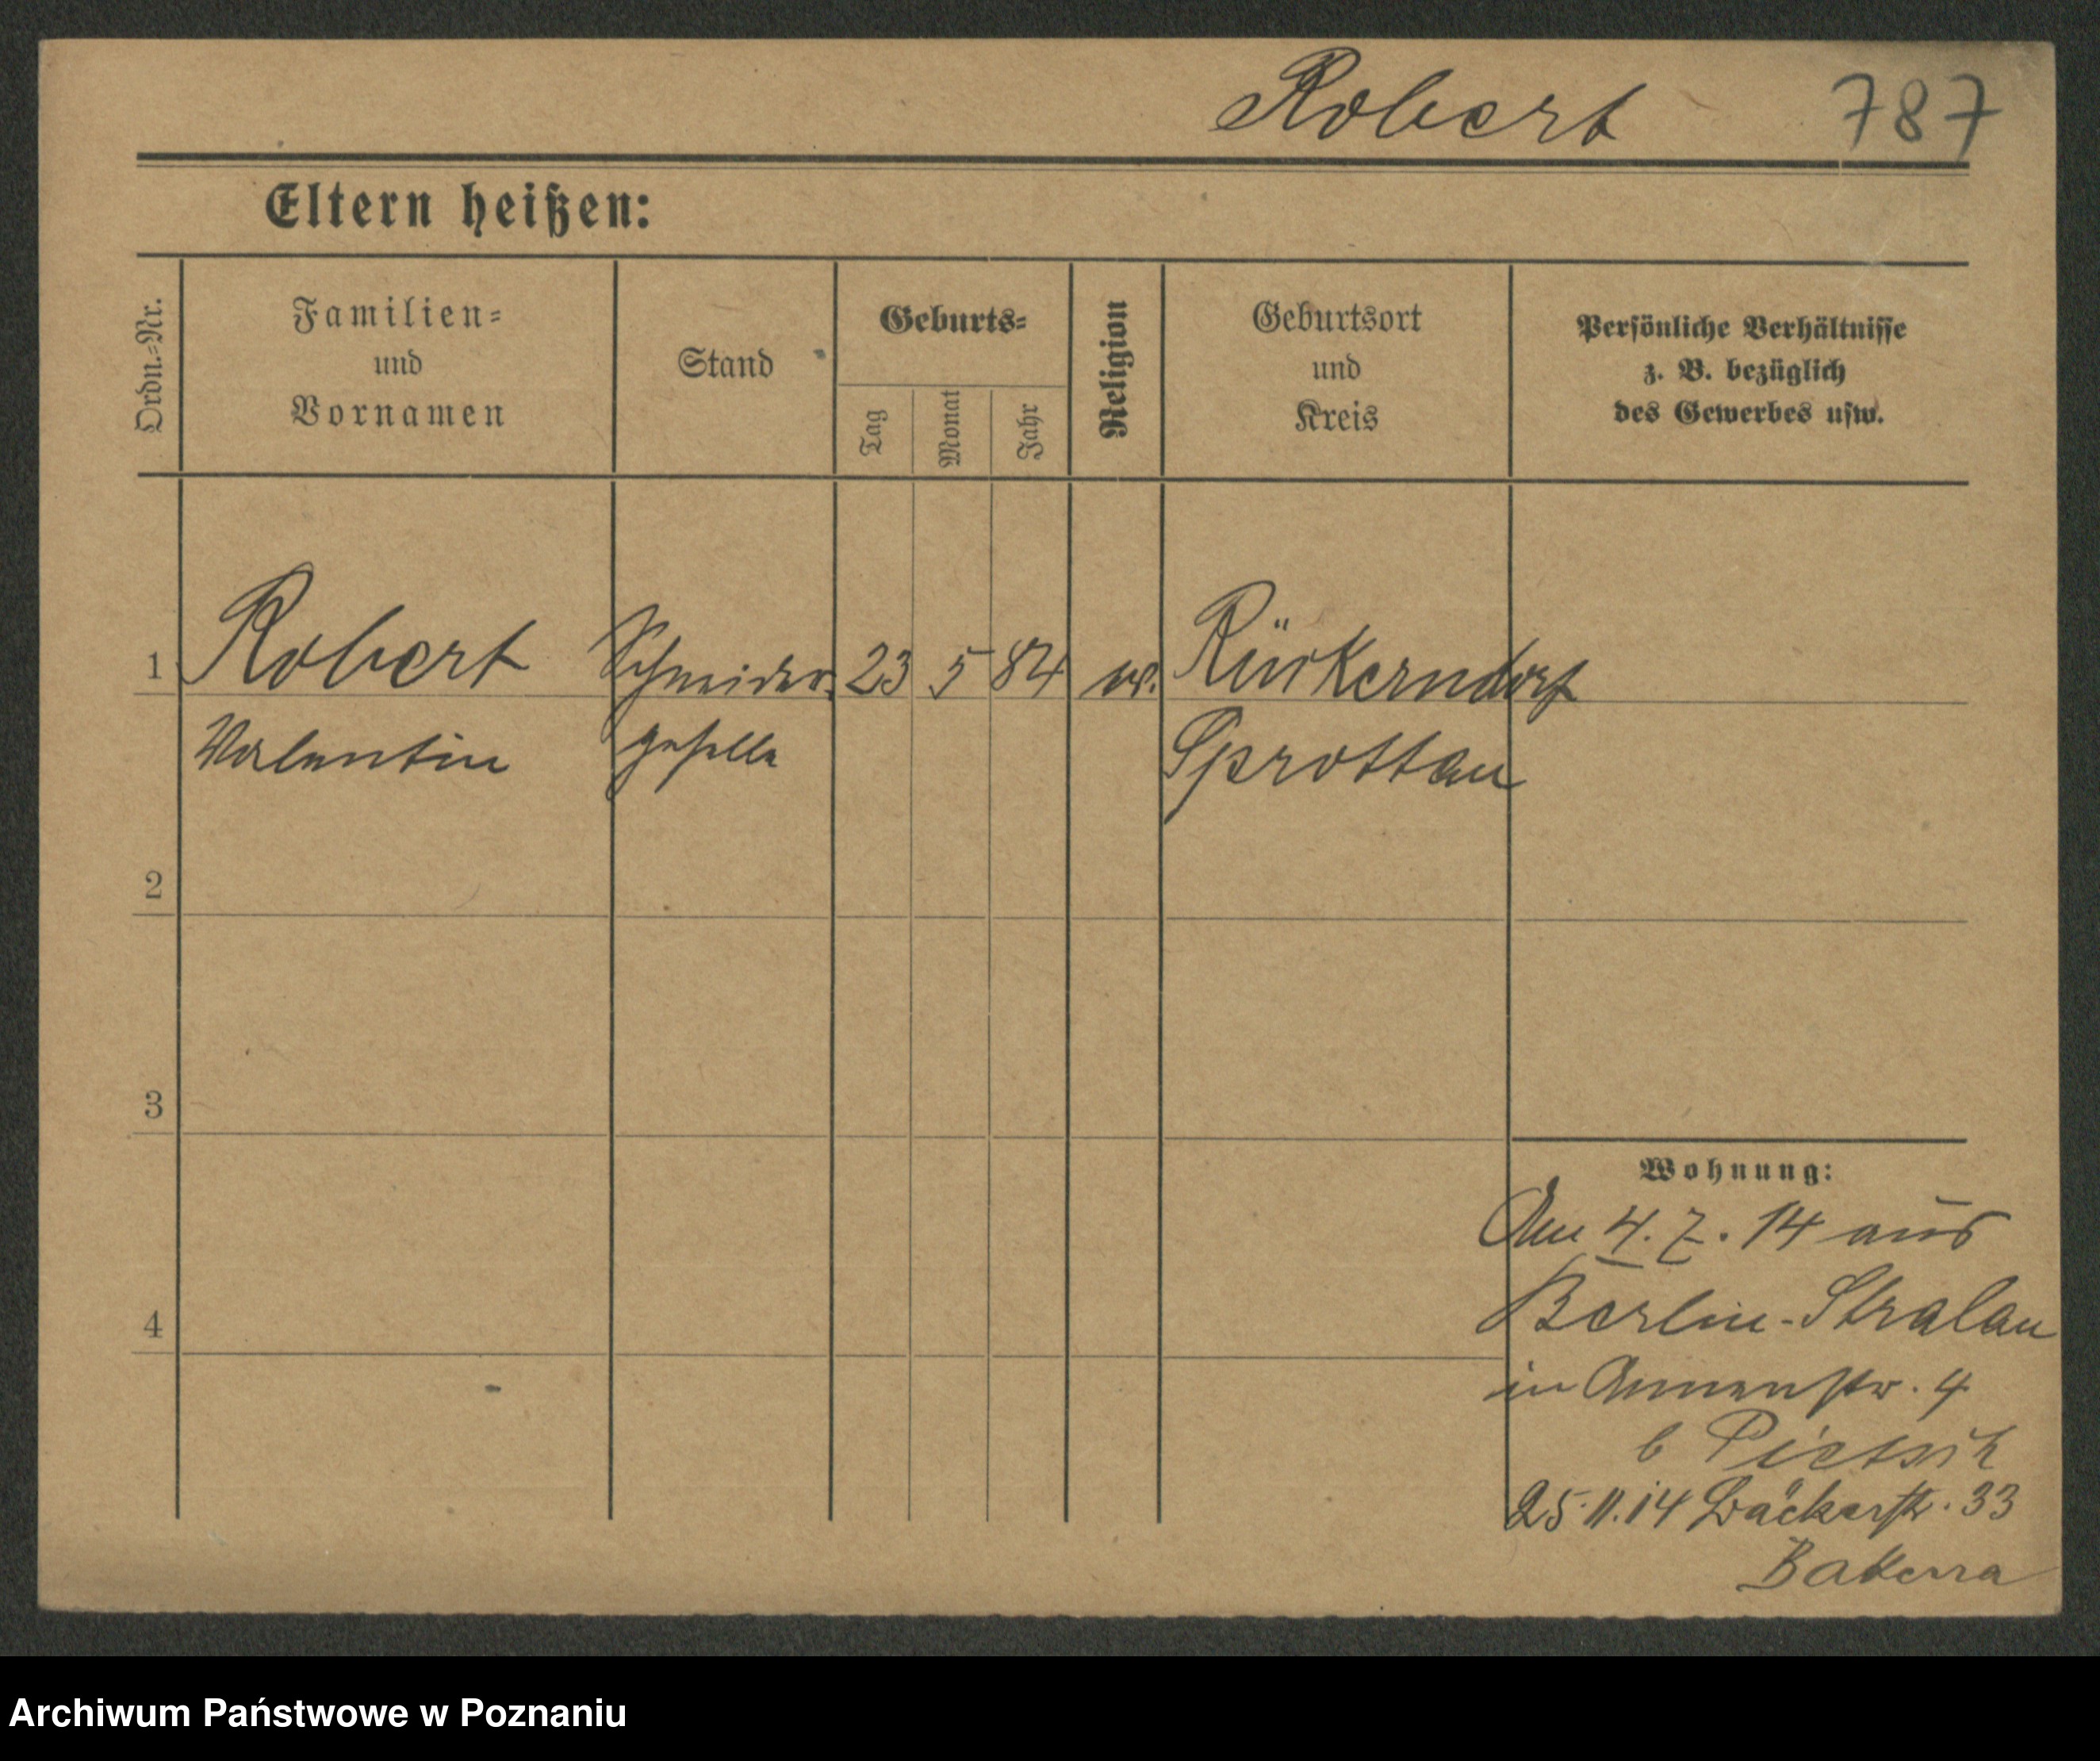 Robert 787
Eltern heißen:
Ordn.=Nr.
Familien=
und
Vornamen
Stand
Geburts=
Tag
Monat
Jahr
Religion
Geburtsort
und
Kreis
Persönliche Verhältnisse
z. B. bezüglich
des Gewerbes usw.
1 Robert Schneider- 23 5 84 Rückersdorf
Valentin geselle Sprottau
2
3
4
Wohnung:
Am 4. 7. 14 aus
Berlin-Stralau
in Annenstr. 4
b Pietsch
25.11.14 Bäckerstr. 33
Bakerra
Archiwum Państwowe w Poznaniu